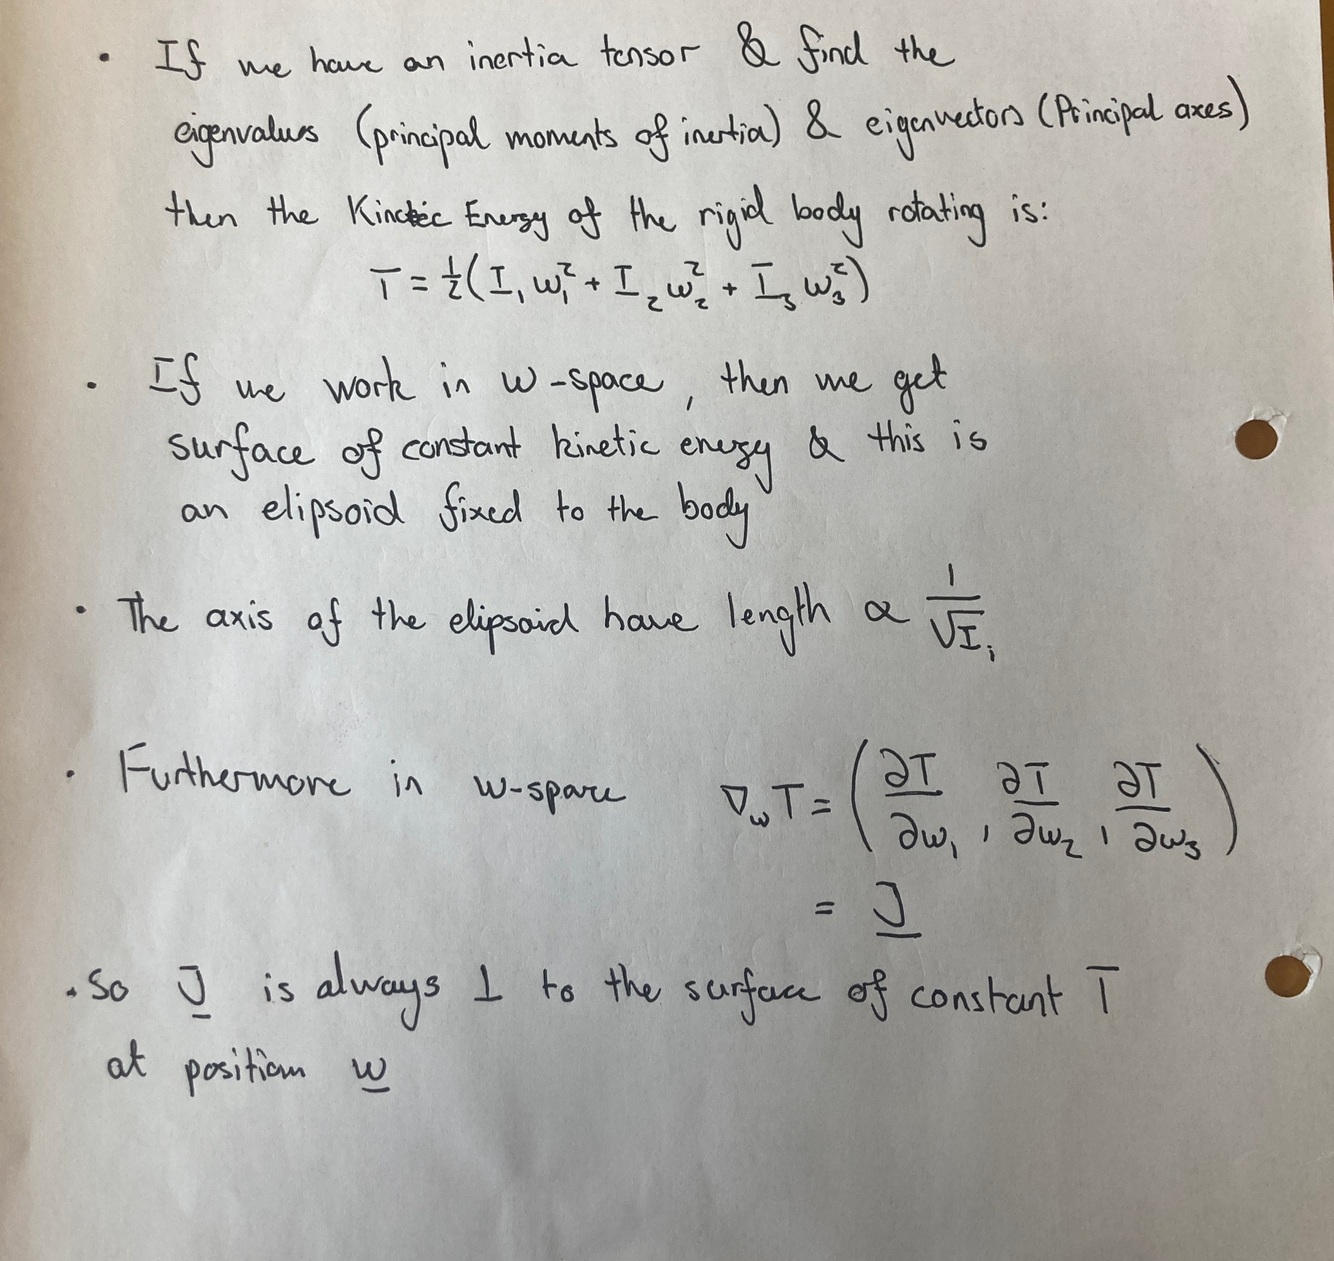 · If we have an inertia tensor & find the
eigenvalues (principal moments of inertia) & eigenvectors (Principal axes)
then the Kinetic Energy of the rigid body rotating is:
T = ½(I₁ω₁² + I₂ω₂² + I₃ω₃²)
· If we work in ω-space, then we get
surface of constant kinetic energy & this is
an elipsoid fixed to the body
· The axis of the elipsoid have length ∝ 1/√Iᵢ
· Furthermore in ω-space ∇_ω T = (∂T/∂ω₁, ∂T/∂ω₂, ∂T/∂ω₃)
= J
· So J is always ⊥ to the surface of constant T
at position ω